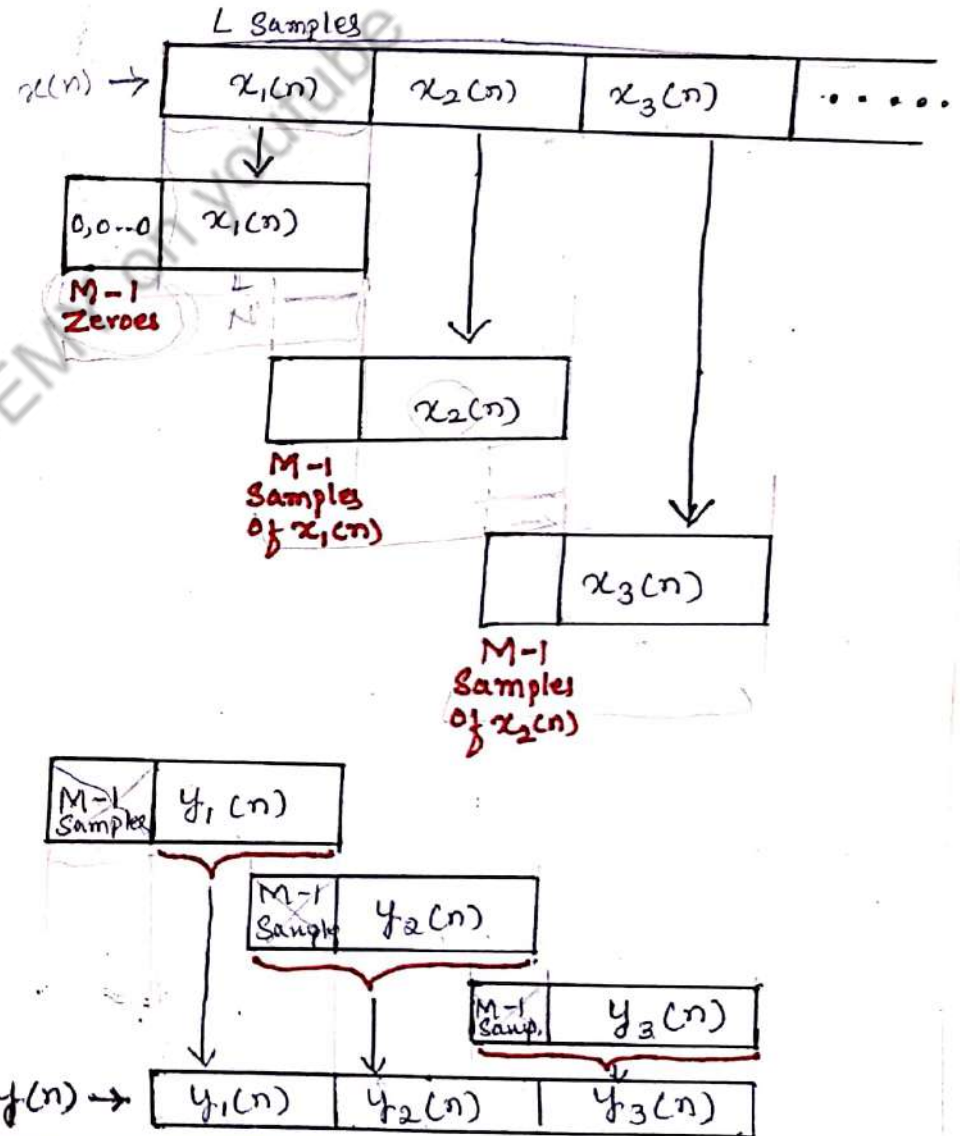 L Samples
x(n) → x₁(n) x₂(n) x₃(n) .....
0,0--0 x₁(n)
M-1
Zeroes
L
N
x₂(n)
M-1
Samples
Of x₁(n)
x₃(n)
M-1
Samples
Of x₂(n)
M-1
Samples
y₁(n)
M-1
Sample
y₂(n)
M-1
Samp.
y₃(n)
y(n) → y₁(n) y₂(n) y₃(n)
EMY on youtube